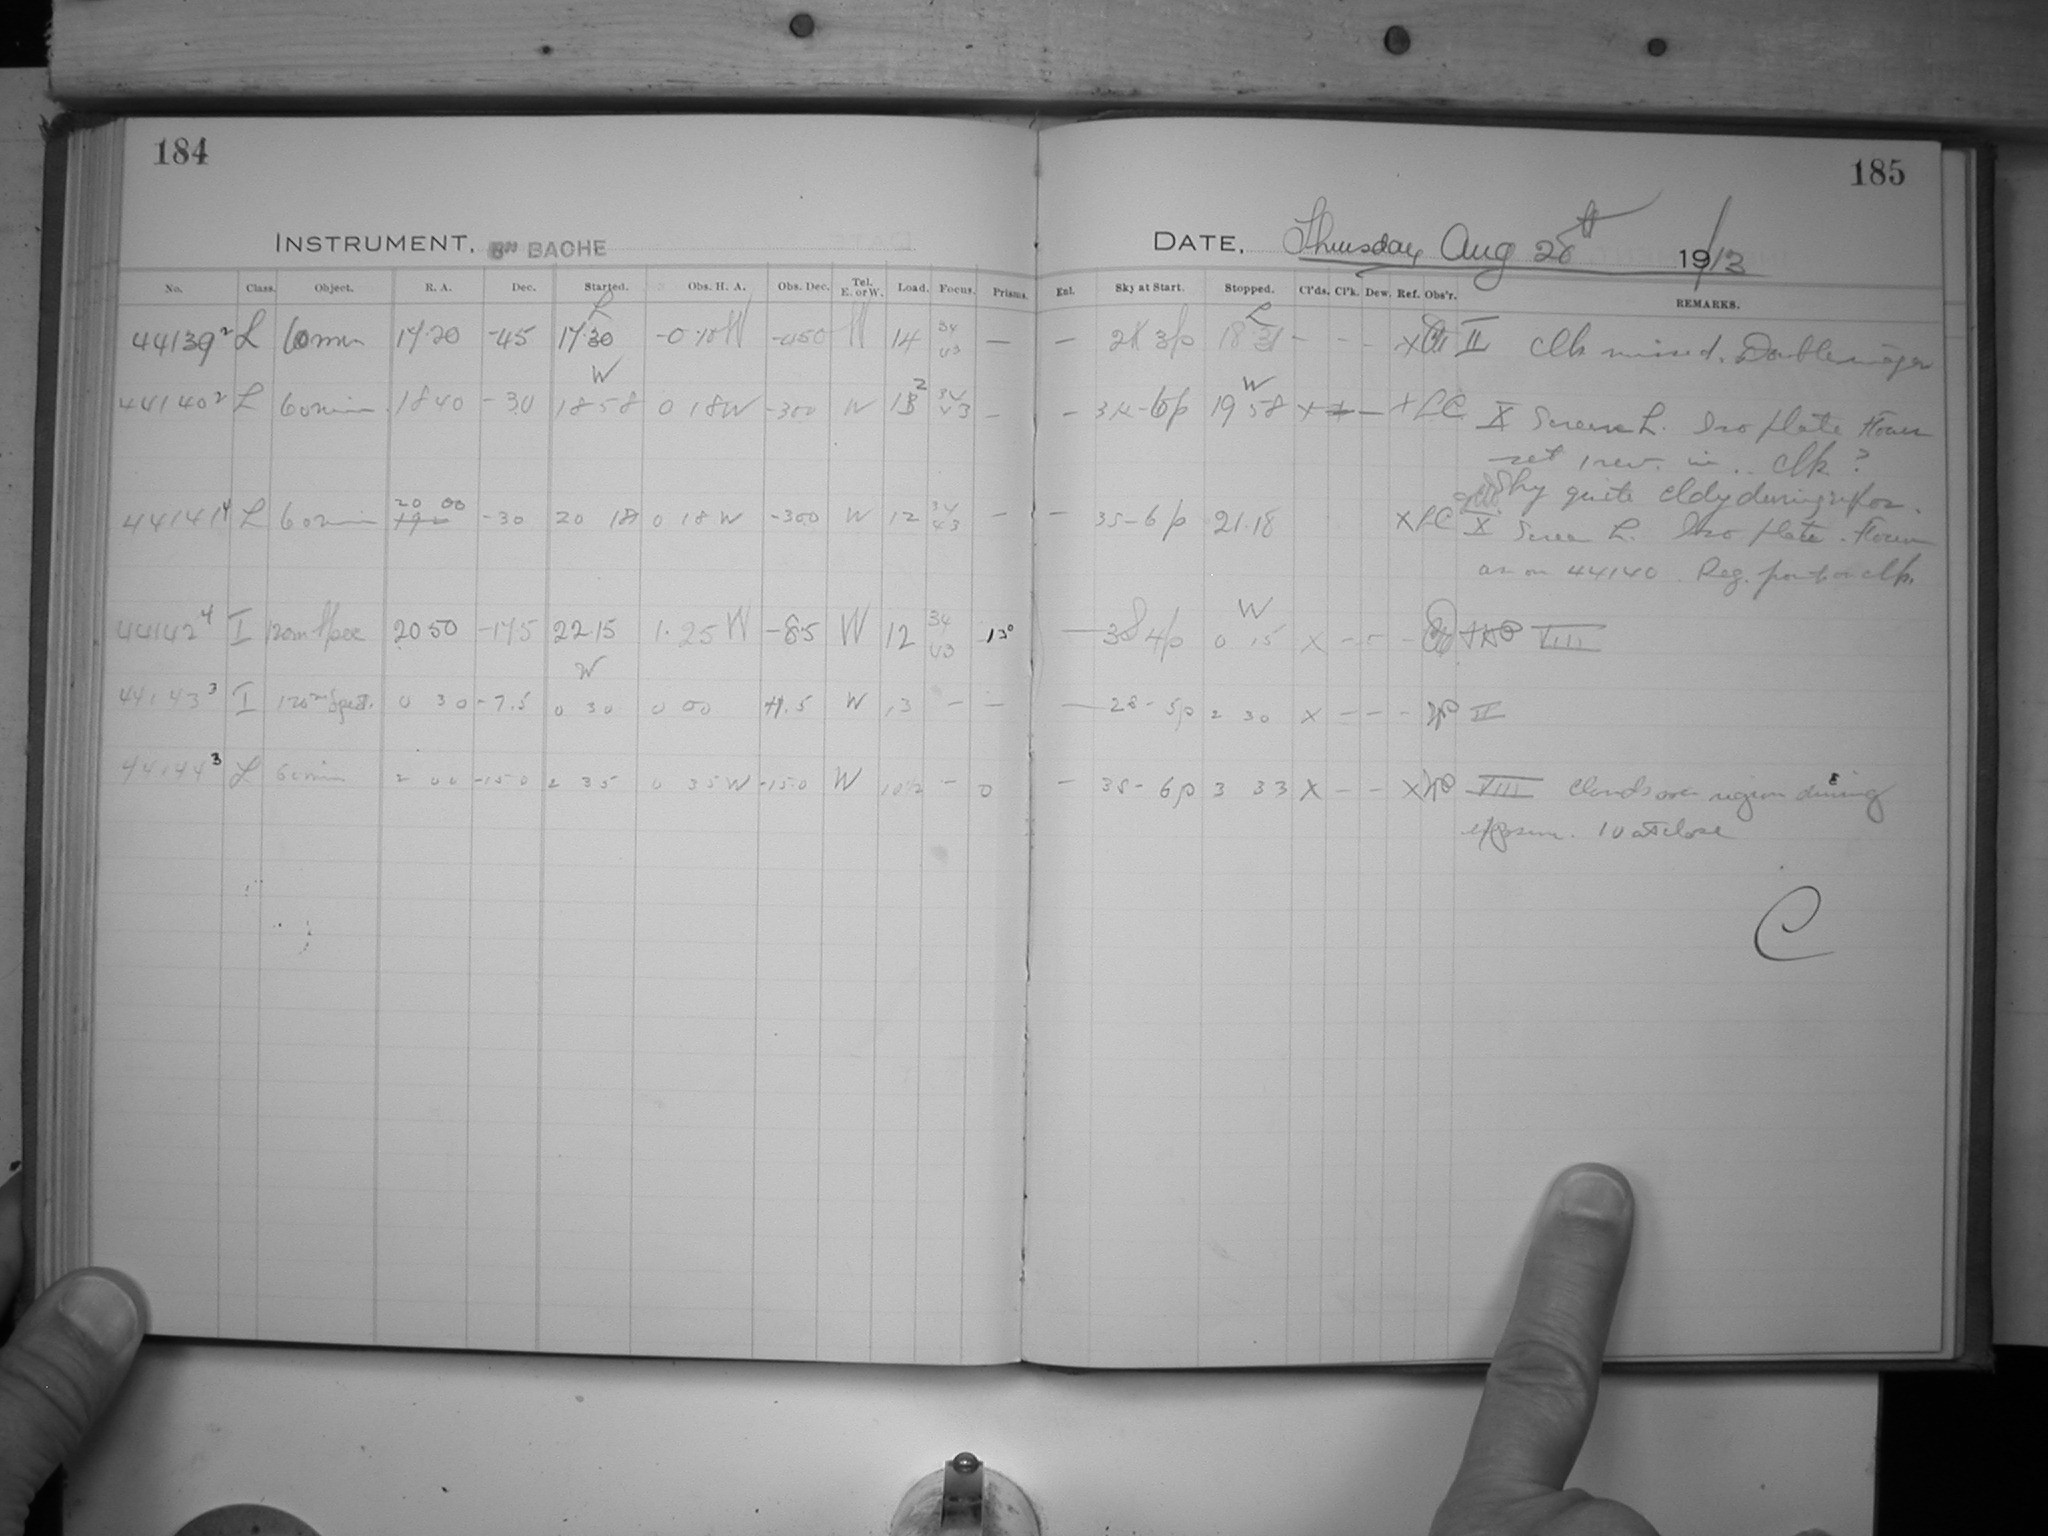 184
185
INSTRUMENT. 8in BACHE
DATE. Thursday Aug 28th 1913
No. Class. Object. R. A. Dec. Started. Obs. H. A. Obs. Dec. Tel. E. or W. Load. Focus. Prisms. Enl. Sky at Start. Stopped. Cl'ds. Cl'k. Dew. Ref. Obs'r. REMARKS.
L L
44139 2 L 60 min 17.20 -45 17.30 -450 W 14 34 43 — — 3p 18 31 - - - X II Clk missed. Double images
W W
44140 2 L 60 min. 18 40 -30 18 58 0 18 W -300 W 2 34 43 — — 6p 19 58 X — X LC X Screen L. Iso plate Focus
set 1 rev. in .. clk ?
Sky quite cldy during
44141 4 L 60 min 20 00 -30 20 18 0 18 W -300 W 12 34 43 — — 35-6p 21.18 X LC X Screen L. Iso plate. Focus
as on 44140. Reg. clk.
W
44142 4 I 120m Spec 20 50 -17.5 22.15 1.25 W -8.5 W 12 34 43 13° — 38 4p 0 15 X - - - VIII
W
44143 3 I 120m Spect. 0 30 -7.5 0 30 0 00 W 13 — — — 28-5p 2 30 X - - - II
44144 3 L 60 min 2 00 -150 2 35 0 35 W -150 W 10½ — 0 — 38-6p 3 33 X - - X VIII Clouds over region during
exposure. 10 at close
C